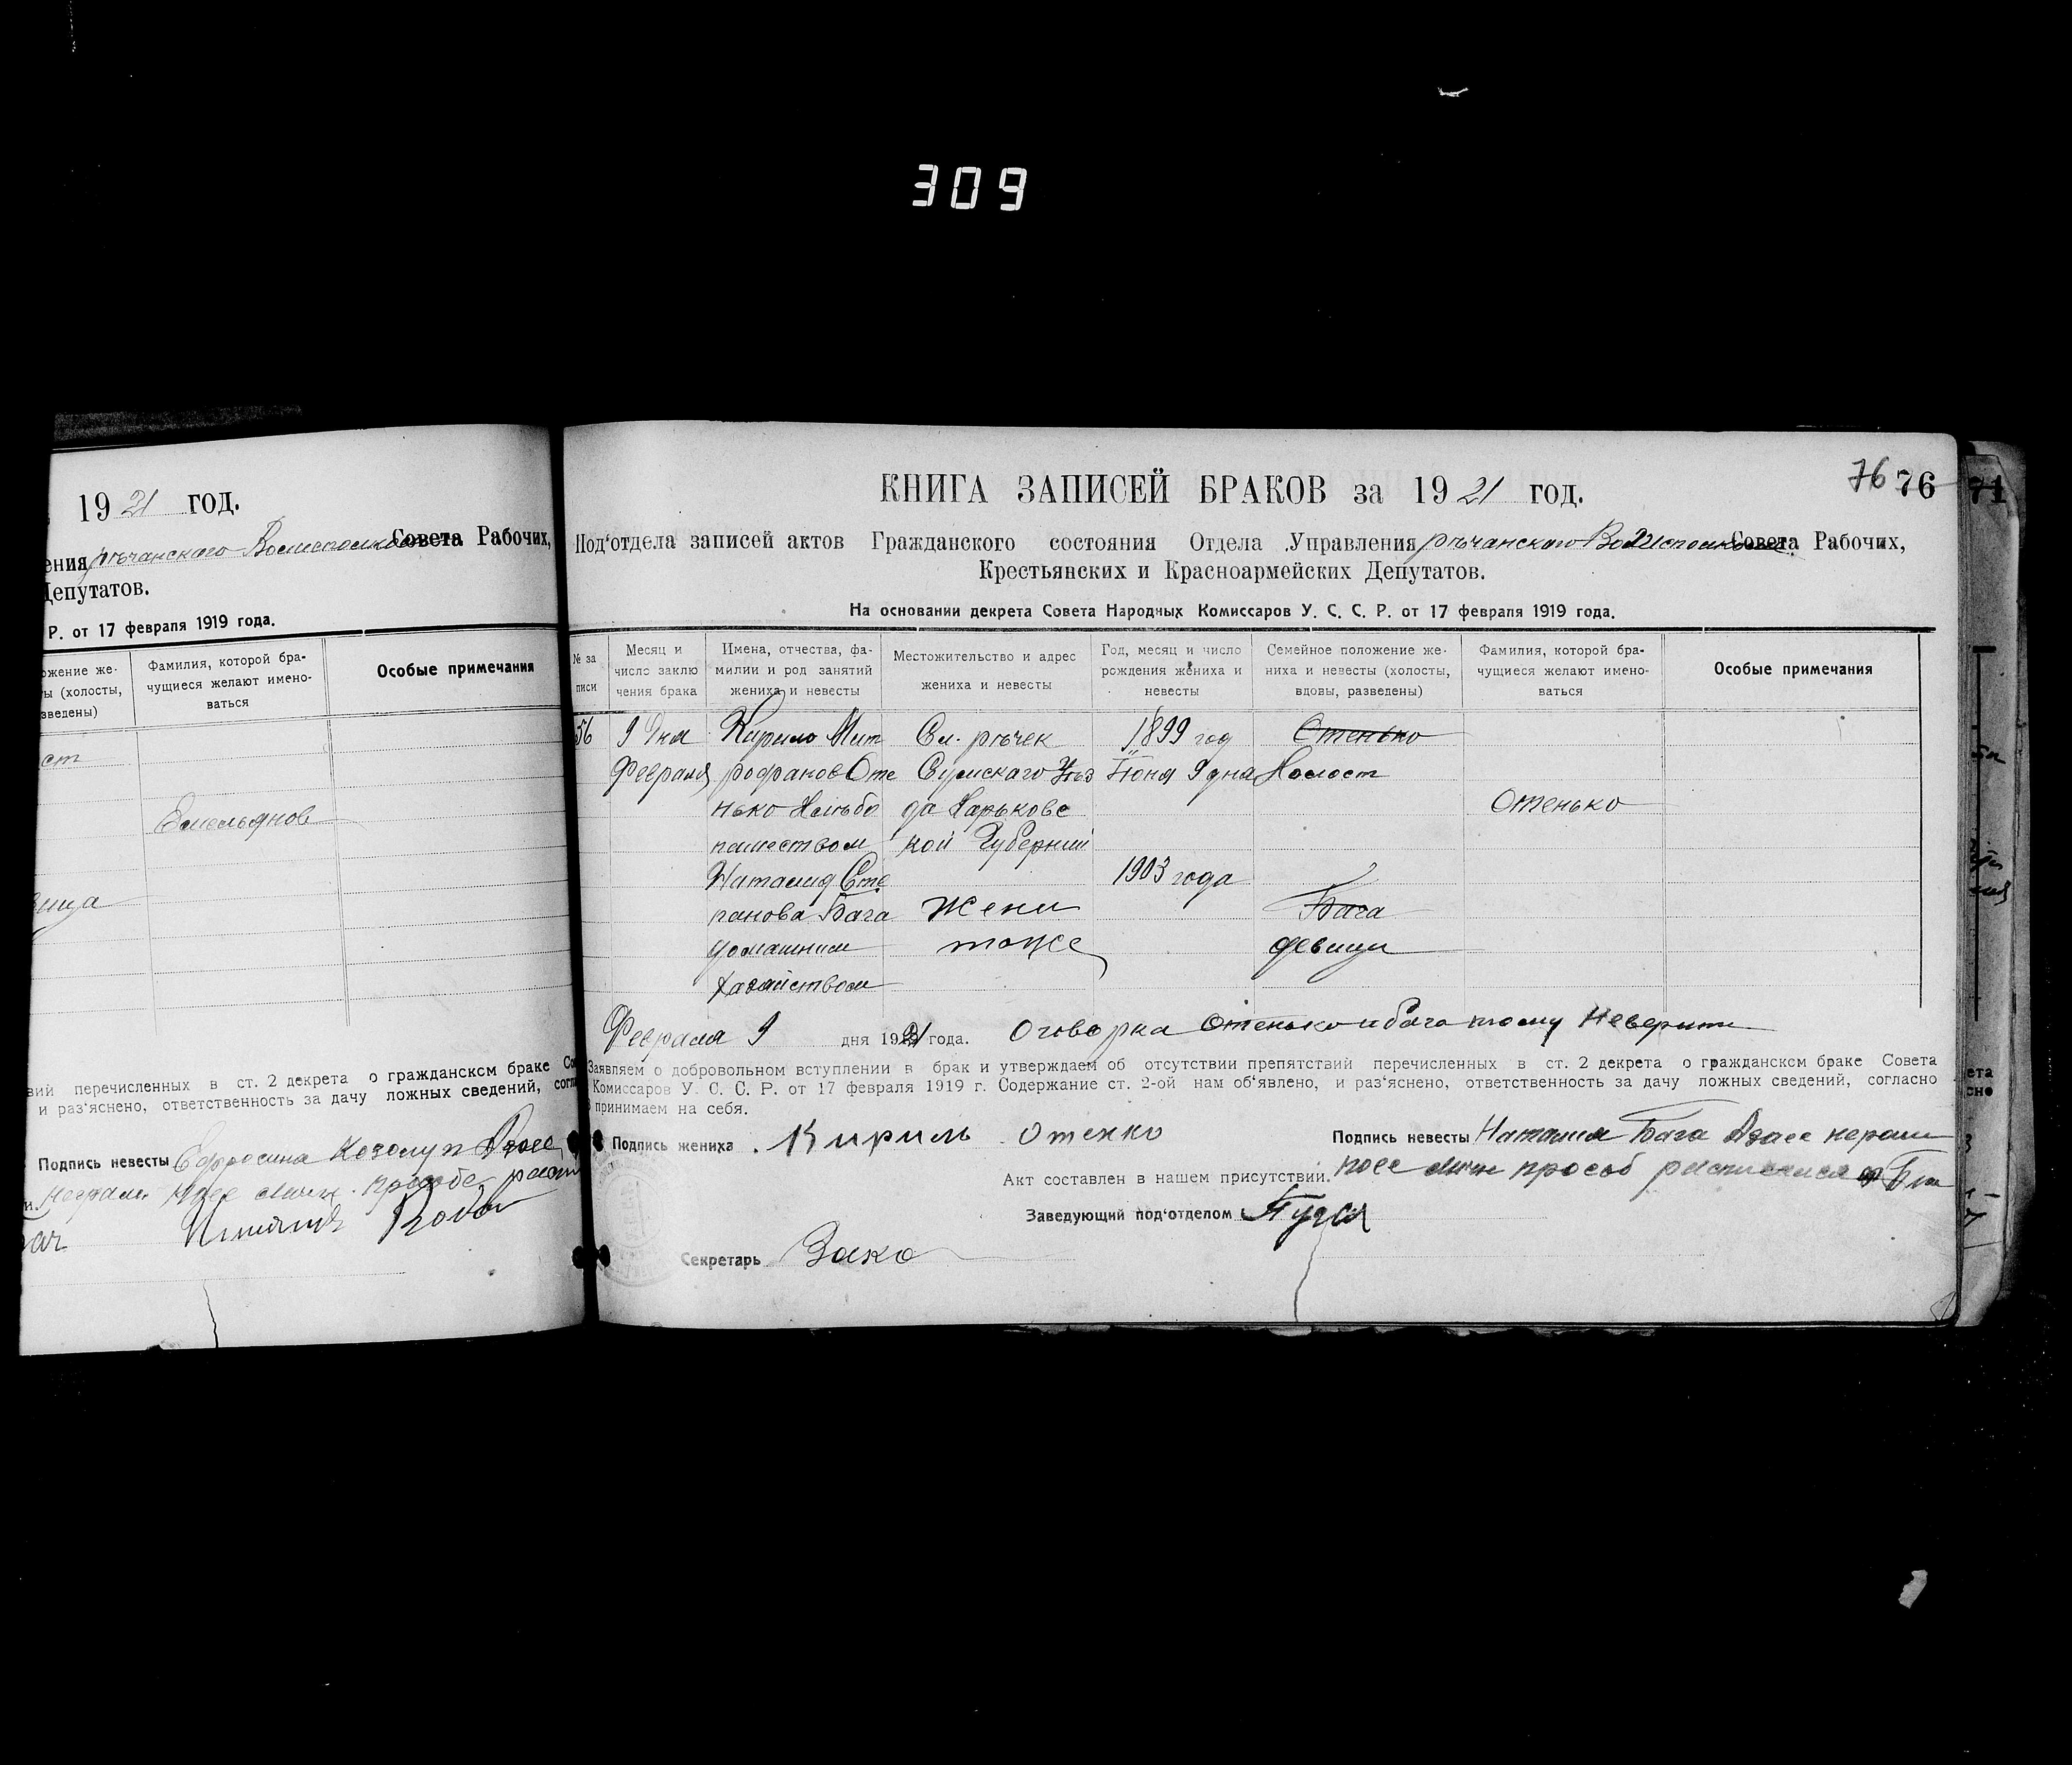 309
19 21 год.
ения рѣчанского Волисполкома Совета Рабочих,
Депутатов.
Р. от 17 февраля 1919 года.
ожение же-
ы (холосты,
зведены)
Фамилия, которой бра-
чущиеся желают имено-
ваться
Особые примечания
ст
Емельянов
вица
вий перечисленных в ст. 2 декрета о гражданском браке Со
и раз'яснено, ответственность за дачу ложных сведений, согл
Подпись невесты Ефросина Козолуп
КНИГА ЗАПИСЕЙ БРАКОВ за 19 21 год.
76 76
71
Под'отдела записей актов Гражданского состояния Отдела Управления рѣчанскаго Волисполкома Совета Рабочих,
Крестьянских и Красноармейских Депутатов.
На основании декрета Совета Народных Комиссаров У. С. С. Р. от 17 февраля 1919 года.
№ за
писи
Месяц и
число заклю
чения брака
Имена, отчества, фа-
милии и род занятий
жениха и невесты
Местожительство и адрес
жениха и невесты
Год, месяц и число
рождения жениха и
невесты
Семейное положение же-
ниха и невесты (холосты,
вдовы, разведены)
Фамилия, которой бра-
чущиеся желают имено-
ваться
Особые примечания
56 9 дня Кирило Мит Сл. рѣчек 1899 год Отенько
Февраля рофанов Оте Сумскаго Уѣз Іюня 9 дня Холост
нько Хлѣбо да Харьковс Отенько
пашеством кой Губернии
Наталия Сте 1903 года
панова Бага Жени Бага
домашним тоже девица
хазайством
Февраля 9 дня 1921 года. Оговорка Отенько и Бага тому Неверить
Заявляем о добровольном вступлении в брак и утверждаем об отсутствии препятствий перечисленных в ст. 2 декрета о гражданском браке Совета
Комиссаров У. С. С. Р. от 17 февраля 1919 г. Содержание ст. 2-ой нам об'явлено, и раз'яснено, ответственность за дачу ложных сведений, согласно
принимаем на себя.
Подпись жениха Кирилъ Отенко Подпись невесты Наталия Бага
Акт составлен в нашем присутствии.
Заведующий под'отделом
Секретарь